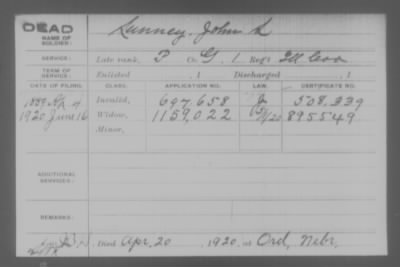 DEAD
NAME OF SOLDIER: Lunney, John L
SERVICE: Late rank, P Co. G, 1 Reg't Ill Cav
TERM OF SERVICE: Enlisted , 1 Discharged , 1
DATE OF FILING. CLASS. APPLICATION NO. LAW. CERTIFICATE NO.
1889 4 Invalid, 697,658 508,339
1920 June 16 Widow, 1159,022 895549
Minor,
ADDITIONAL SERVICES:
REMARKS:
Died Apr. 20 1920, at Ord, Nebr.